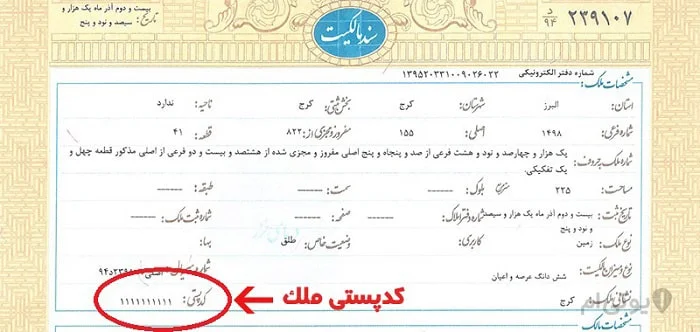 ۲۳۹۱۰۷ د ۹۴
بیست و دوم آذر ماه یک هزار و
تاریخ: سیصد و نود و پنج
سند مالکیت
شماره دفتر الکترونیکی: ۱۳۹۵۲۰۳۳۱۰۰۹۰۲۶۰۲۲
مشخصات ملک:
استان: البرز شهرستان: کرج بخش ثبتی: کرج ناحیه: ندارد
شماره فرعی: ۱۴۹۸ اصلی: ۱۵۵ مفروز و مجزی از: ۸۲۲ قطعه: ۴۱
شماره ملک بحروف: یک هزار و چهارصد و نود و هشت فرعی از صد و پنجاه و پنج اصلی مفروز و مجزی شده از هشتصد و بیست و دو فرعی از اصلی مذکور قطعه چهل و
یک تفکیکی.
مساحت: ۲۲۵ متر مربع بلوک: ------ سمت: ------ طبقه: ------
تاریخ ثبت: بیست و دوم آذر ماه یک هزار و سیصد و نود و پنج شماره دفتر املاک: ------ صفحه: ------ شماره ثبت ملک: ------
نوع ملک: زمین کاربری: وضعیت خاص: طلق بها:
نوع و میزان مالکیت: شش دانگ عرصه و اعیان
نشانی ملک: کرج کدپستی: ۱۱۱۱۱۱۱۱۱۱
کدپستی ملک
یوتی‌ام
مشخصات مالک: